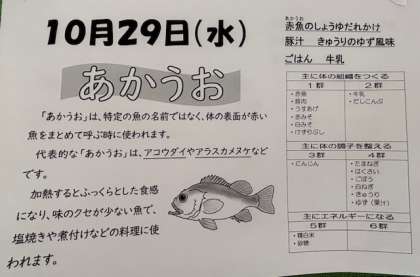 10月29日(水)
あかうお
「あかうお」は、特定の魚の名前ではなく、体の表面が赤い
魚をまとめて呼ぶ時に使われます。
代表的な「あかうお」は、アコウダイやアラスカメヌケなど
です。
加熱するとふっくらとした食感
になり、味のクセが少ない魚で、
塩焼きや煮付けなどの料理に使
われます。
あかうお
赤魚のしょうゆだれかけ
豚汁 きゅうりのゆず風味
ごはん 牛乳
主に体の組織をつくる
1群 2群
・赤魚 ・牛乳
・豚肉 ・だしこんぶ
・うすあげ
・赤みそ
・白みそ
・けずりぶし
主に体の調子を整える
3群 4群
・にんじん ・たまねぎ
・はくさい
・ごぼう
・白ねぎ
・きゅうり
・ゆず(果汁)
主にエネルギーになる
5群 6群
・精白米
・砂糖